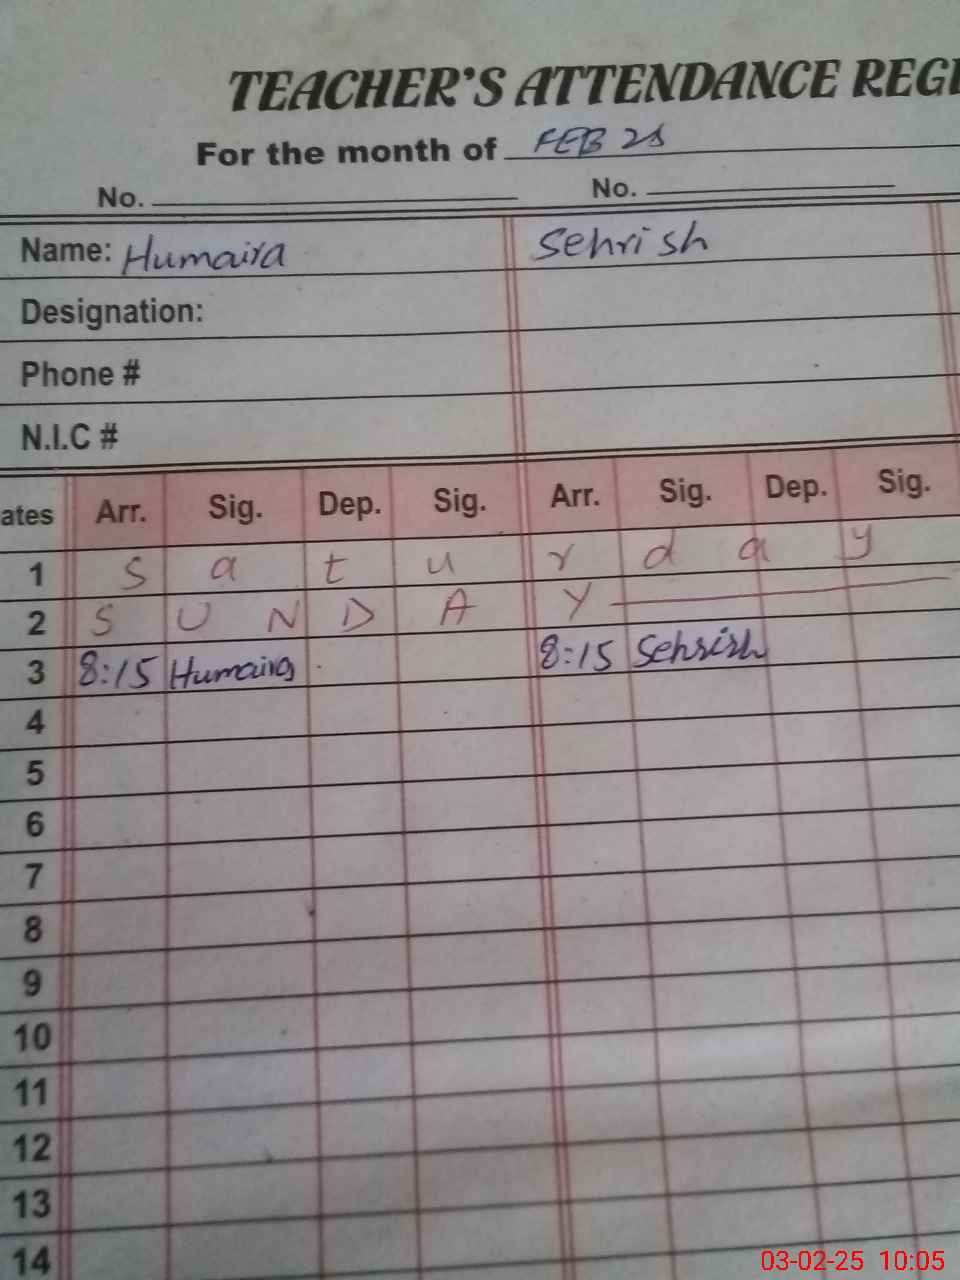 TEACHER'S ATTENDANCE REGI
For the month of FEB 25
No. No.
Name: Humaira Sehrish
Designation:
Phone #
N.I.C #
ates Arr. Sig. Dep. Sig. Arr. Sig. Dep. Sig.
1 S a t u r d a y
2 S U N D A Y
3 8:15 Humaira 8:15 Sehrish
4
5
6
7
8
9
10
11
12
13
14
03-02-25 10:05